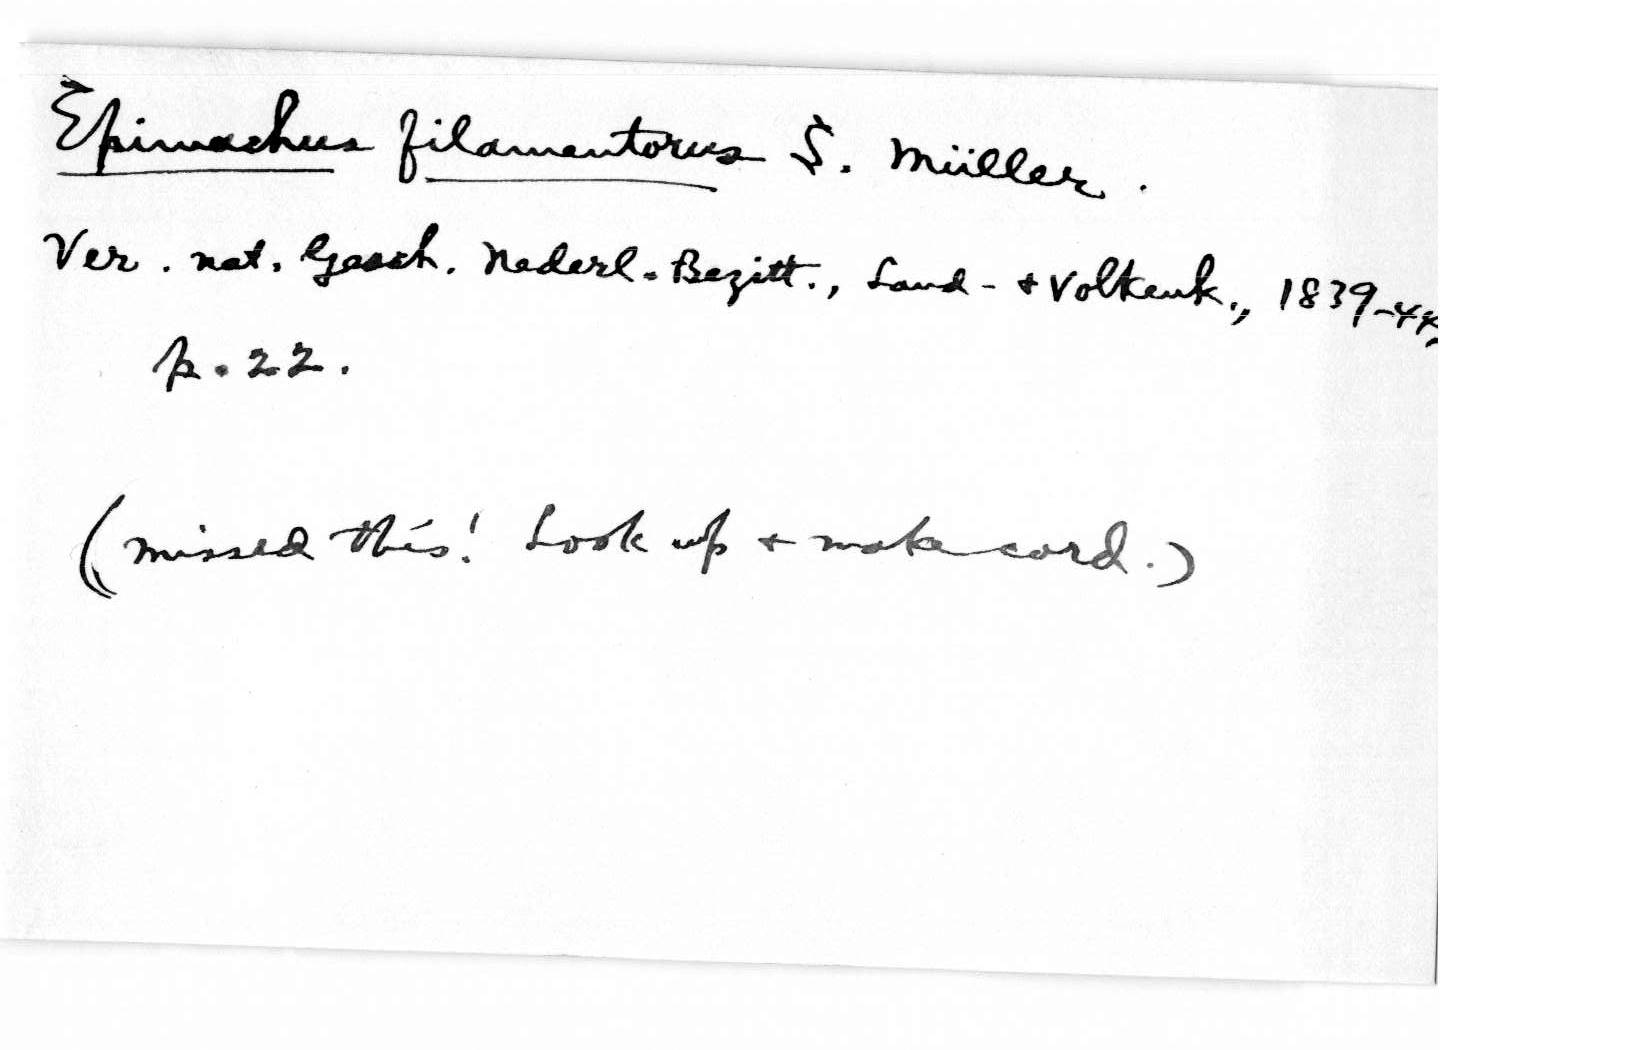 Epimachus filamentosus S. Müller.
Ver. nat. Gesch. Nederl. Bezitt., Land- + Volkenk., 1839-44,
p. 22.
(missed this! Look up + make card.)